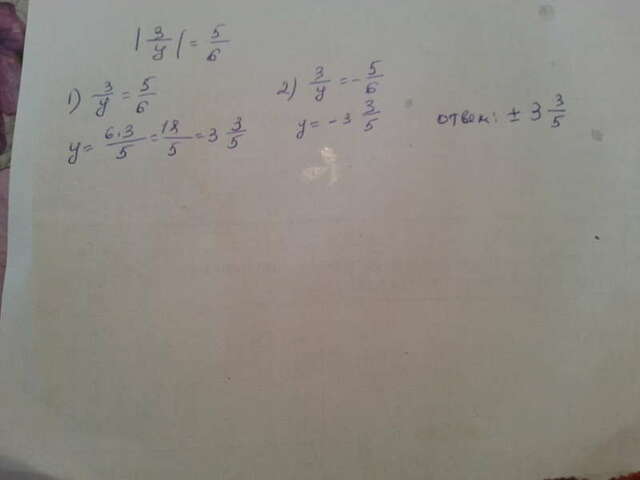 |3/y| = 5/6
1) 3/y = 5/6
y = 6·3/5 = 18/5 = 3 3/5
2) 3/y = - 5/6
y = - 3 3/5
ответ: ± 3 3/5